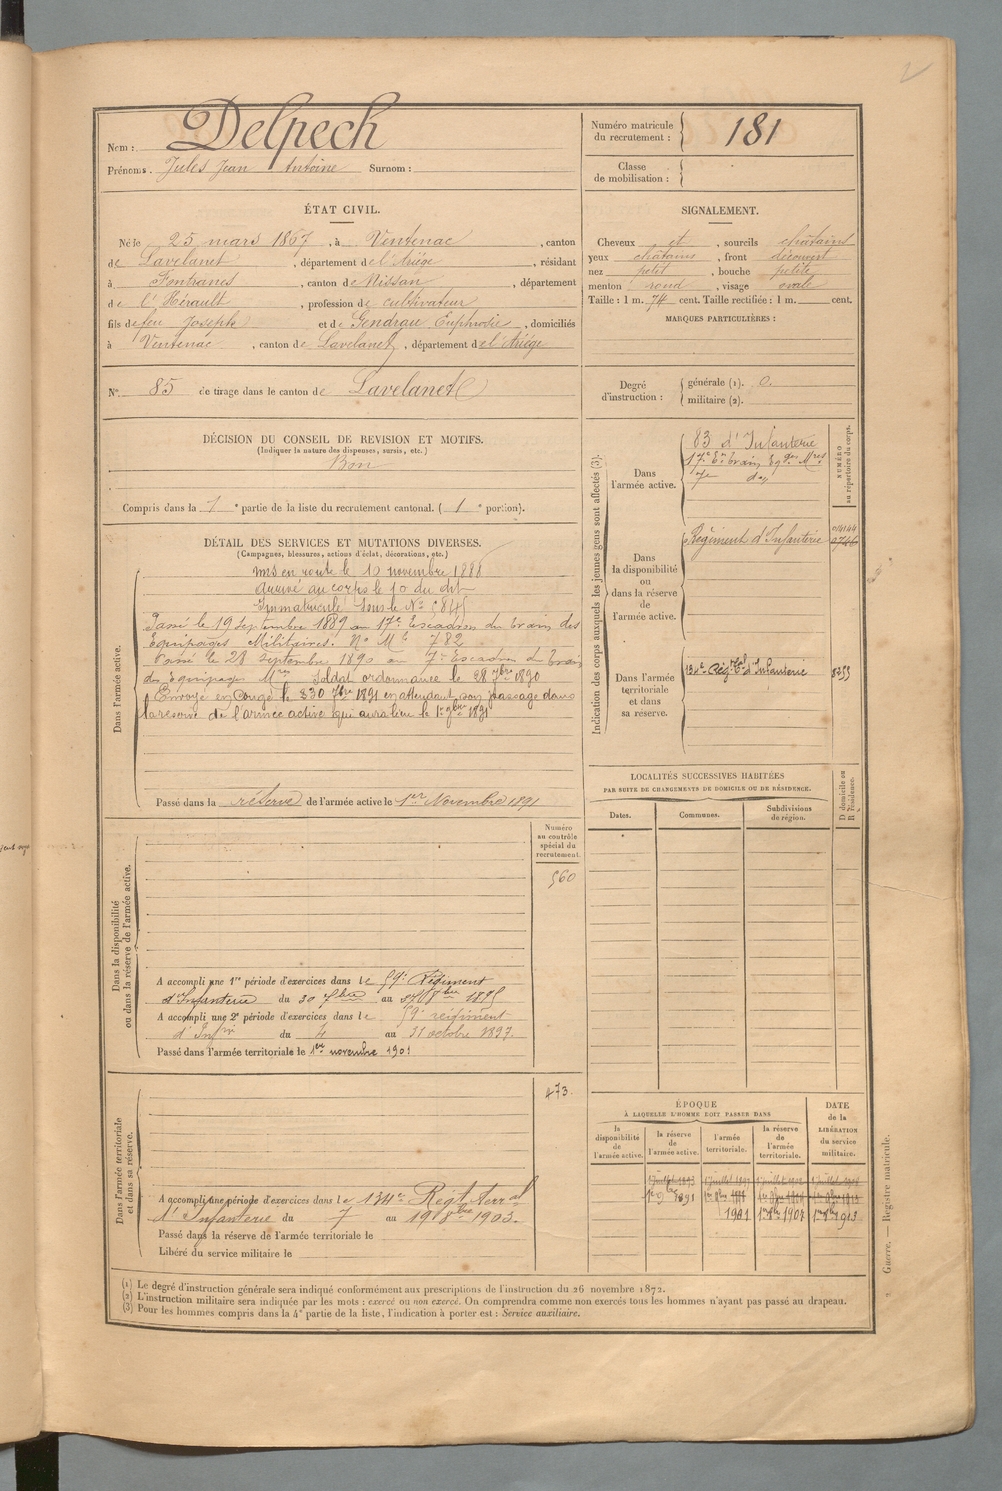 2
Nom : Delpech
Prénoms : Jules Jean Antoine Surnom :
Numéro matricule
du recrutement : 181
Classe
de mobilisation :
ÉTAT CIVIL.
Né le 25 mars 1867, à Ventenac, canton
de Lavelanet, département de l'Ariège, résidant
à Fontranes, canton de Nissan, département
de l'Hérault, profession de cultivateur
fils de feu Joseph et de Gendrau Euphrosie, domiciliés
à Ventenac, canton de Lavelanet, département de l'Ariège
SIGNALEMENT.
Cheveux et, sourcils châtains
yeux châtains, front découvert
nez petit, bouche petite
menton rond, visage ovale
Taille : 1 m. 74 cent. Taille rectifiée : 1 m. cent.
MARQUES PARTICULIÈRES :
N° 85 de tirage dans le canton de Lavelanet
Degré
d'instruction :
générale (1). 0.
militaire (2).
DÉCISION DU CONSEIL DE REVISION ET MOTIFS.
(Indiquer la nature des dispenses, sursis, etc.)
Bon
Compris dans la 1e partie de la liste du recrutement cantonal. (1e portion).
DÉTAIL DES SERVICES ET MUTATIONS DIVERSES.
(Campagnes, blessures, actions d'éclat, décorations, etc.)
Dans l'armée active.
mis en route le 10 novembre 1888
Arrivé au corps le 10 du dit
Immatriculé sous le N° 5845
Passé le 19 Septembre 1889 au 17e Escadron du train des
Equipages Militaires. N° Mle 782
Passé le 28 Septembre 1890 au 7e Escadron du train
des Equipages Mres Soldat ordonnance le 28 7bre 1890
Envoyé en Congé le 30 7bre 1891 en attendant son passage dans
la réserve de l'armée active qui aura lieu le 1er 9bre 1891
Passé dans la réserve de l'armée active le 1er Novembre 1891
Indication des corps auxquels les jeunes gens sont affectés (3).
NUMÉRO
au répertoire du corps.
Dans
l'armée active.
83 d'Infanterie
17e Eon train Eqges Mres
7e do
Dans
la disponibilité
ou
dans la réserve
de
l'armée active.
Régiment d'Infanterie
Dans l'armée
territoriale
et dans
sa réserve.
134e Régt tal d'Infanterie
LOCALITÉS SUCCESSIVES HABITÉES
PAR SUITE DE CHANGEMENTS DE DOMICILE OU DE RÉSIDENCE.
D domicile ou
R résidence.
Dates.
Communes.
Subdivisions
de région.
Dans la disponibilité
ou dans la réserve de l'armée active.
Numéro
au contrôle
spécial du
recrutement.
560
A accompli une 1re période d'exercices dans le 59e Régiment
d'Infanterie du 30 7bre au 27 8bre 1895
A accompli une 2e période d'exercices dans le 59e régiment
d'Infrie du 4 au 31 octobre 1897.
Passé dans l'armée territoriale le 1er novembre 1901
Dans l'armée territoriale
et dans sa réserve.
473
A accompli une période d'exercices dans le 134e Régt terral
d'Infanterie du 7 au 19 8bre 1903.
Passé dans la réserve de l'armée territoriale le
Libéré du service militaire le
ÉPOQUE
À LAQUELLE L'HOMME DOIT PASSER DANS
la
disponibilité
de
l'armée active.
la réserve
de
l'armée active.
l'armée
territoriale.
la réserve
de
l'armée
territoriale.
DATE
de la
LIBÉRATION
du service
militaire.
1901
Guerre. — Registre matricule.
(1) Le degré d'instruction générale sera indiqué conformément aux prescriptions de l'instruction du 26 novembre 1872.
(2) L'instruction militaire sera indiquée par les mots : exercé ou non exercé. On comprendra comme non exercés tous les hommes n'ayant pas passé au drapeau.
(3) Pour les hommes compris dans la 4e partie de la liste, l'indication à porter est : Service auxiliaire.